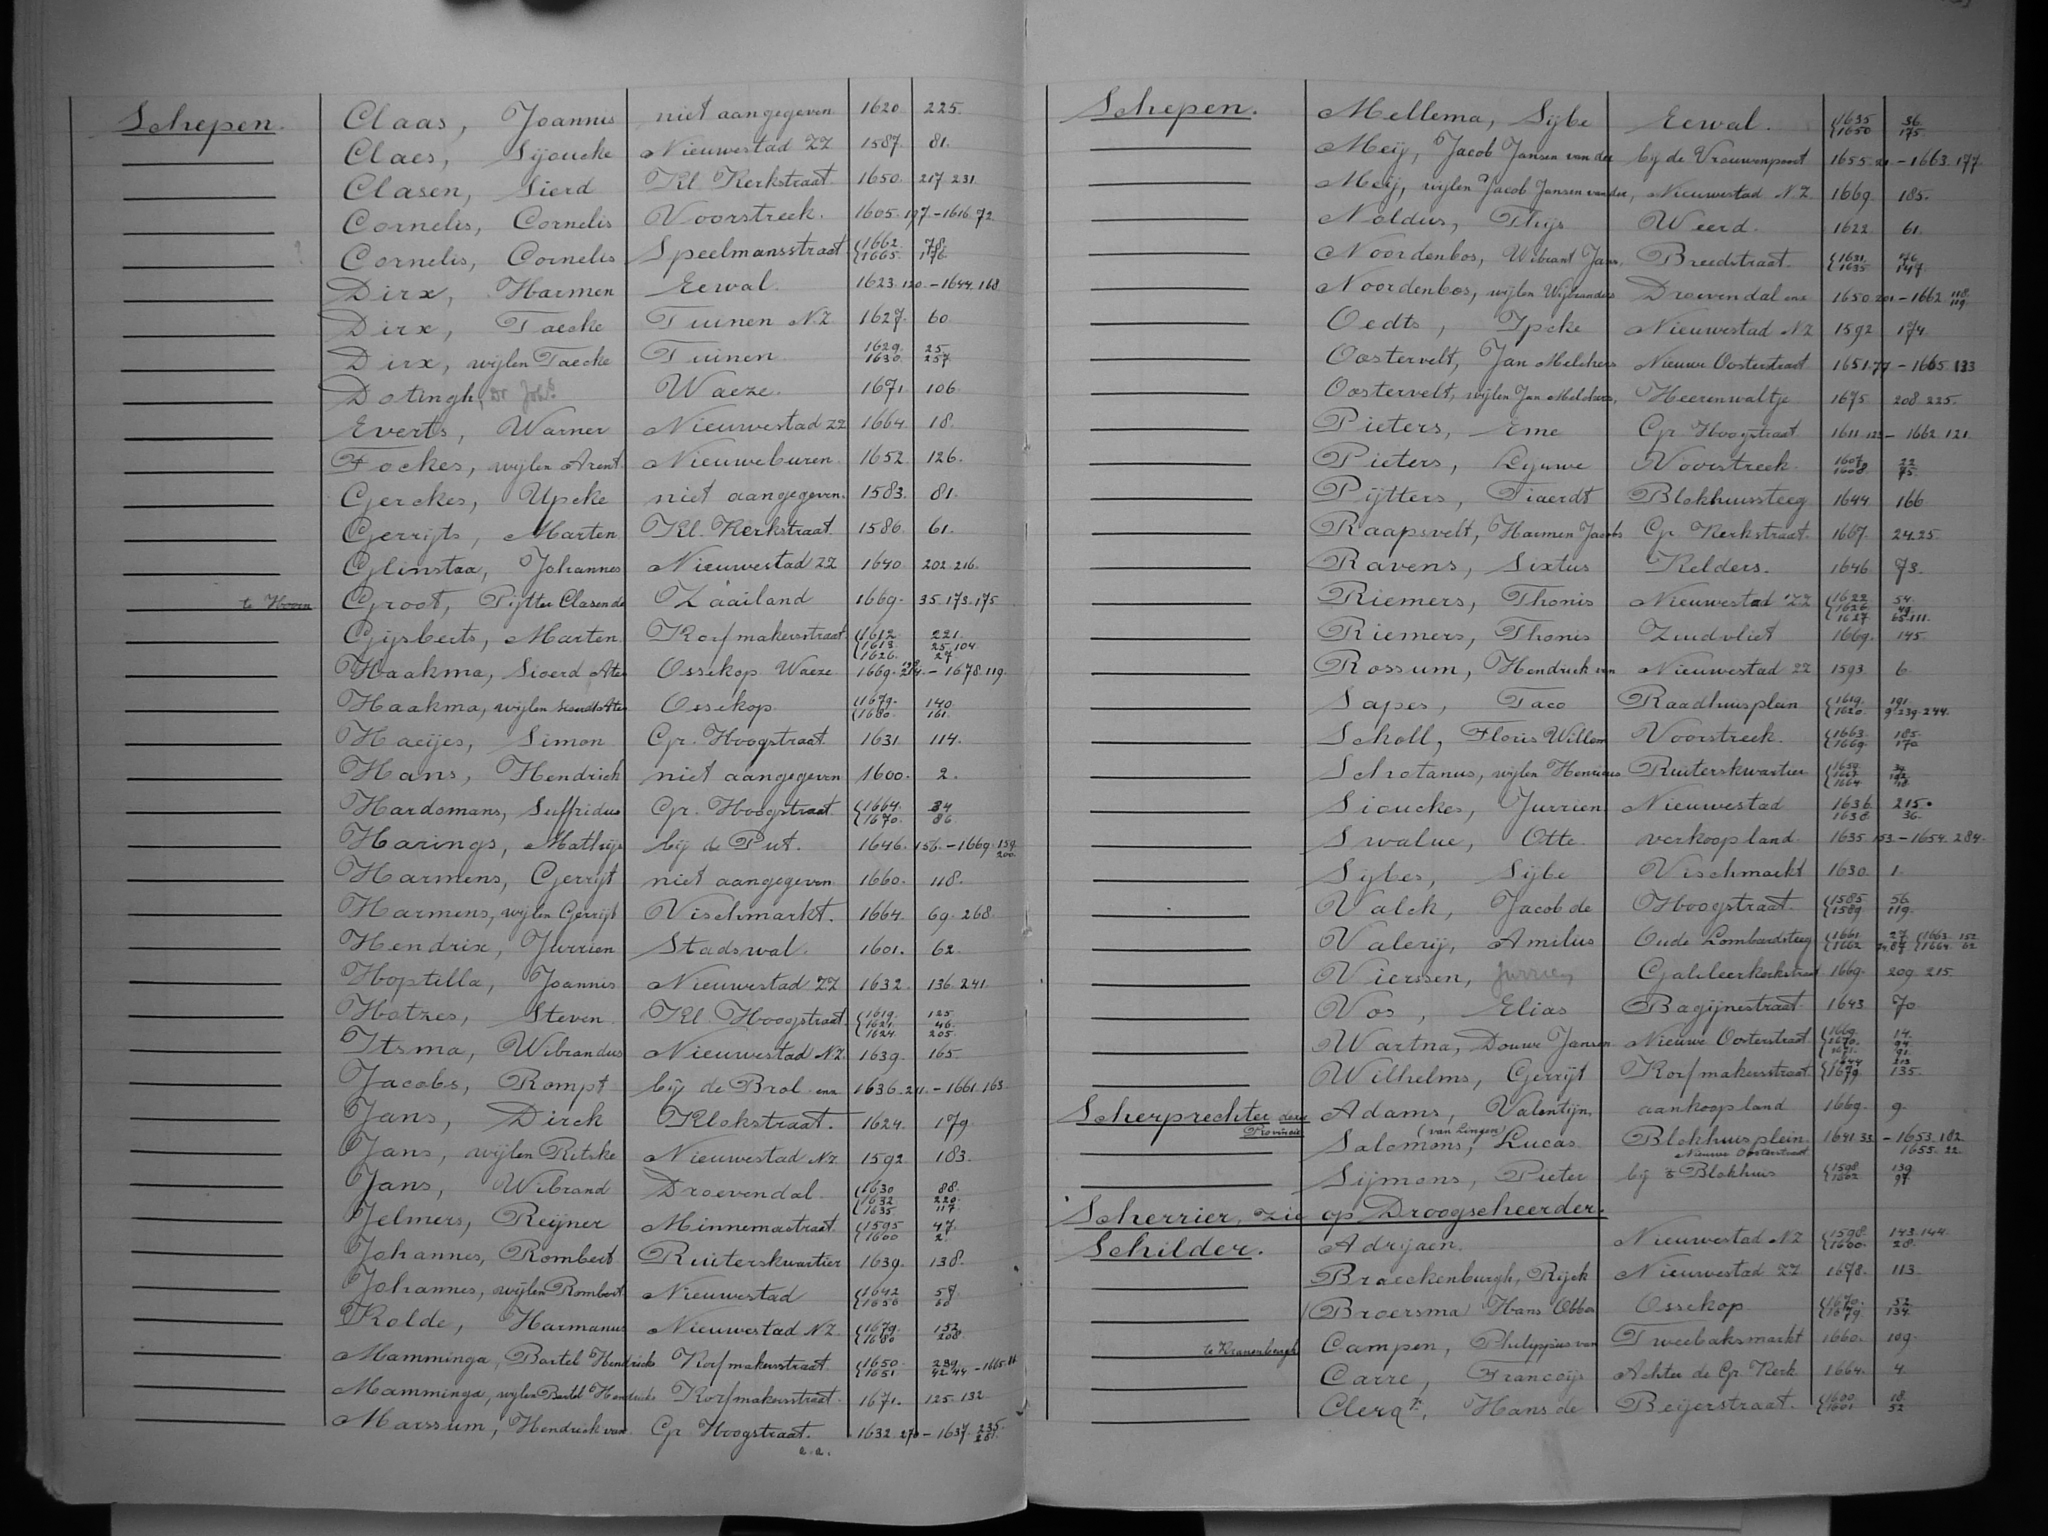 Schepen. Claas, Joannis niet aangegeven 1620 225.
Claes, Sijoucke Nieuwestad ZZ 1587. 81.
Clasen, Sierd Kl. Kerkstraat. 1650. 217. 231.
Cornelis, Cornelis Voorstreek. 1605. 197. - 1616. 72.
Cornelis, Cornelis Speelmansstraat 1662. 78.
1665. 176.
Dirx, Harmen Eewal. 1623. 120. - 1644. 168
Dirx, Taecke Tuinen N.Z. 1627. 60.
Dirx, wijlen Taecke Tuinen 1629. 25.
1630. 257.
Dotingh, Dr Joh.s Waeze. 1671. 106.
Everts, Warner Nieuwestad ZZ 1664. 18.
Fockes, wijlen Arent Nieuweburen. 1652. 126.
Gerckes, Upcke niet aangegeven. 1583. 81.
Gerrijts, Marten Kl. Kerkstraat. 1586. 61.
Glinstra, Johannes Nieuwestad ZZ 1640. 202. 216.
te Hoorn Groot, Pijtter Clasen de Zaailand 1669. 35. 173. 175.
Gijsberts, Marten Korfmakersstraat. 1612. 221.
1613. 25. 104.
1626. 27.
Haakma, Sioerd Ates Ossekop Waeze 1669. - 1678. 119.
Haakma, wijlen Sioerd Ates Ossekop 1679. 140
1680. 161.
Haeijes, Simon Gr. Hoogstraat. 1631. 114.
Hans, Hendrick niet aangegeven 1600. 2.
Hardomans, Suffridus Gr. Hoogstraat. 1664. 34
1670. 86.
Harings, Mathijs bij de Put. 1646. 156. - 1669. 159.
200.
Harmens, Gerrijt niet aangegeven. 1660. 118.
Harmens, wijlen Gerrijt Vischmarkt. 1664. 69. 268.
Hendrix, Jurrien Stadswal. 1601. 62.
Hoptilla, Joannis Nieuwestad ZZ 1632. 136. 241.
Hotzes, Steven Kl. Hoogstraat. 1619. 125.
1621. 46.
1624 205.
Itsma, Wibrandus Nieuwestad N.Z. 1639. 165.
Jacobs, Rompt bij de Brol enz 1636. 211. - 1661. 163.
Jans, Dirck Klokstraat. 1624. 179.
Jans, wijlen Ritske Nieuwestad N.Z. 1592. 183.
Jans, Wibrand Droevendal. 1630 88.
1632 220.
1635 117.
Jelmers, Reijner Minnemastraat. 1595 47.
1600 2.
Johannes, Rombert Ruiterskwartier 1639. 138.
Johannes, wijlen Rombert Nieuwestad 1642 57.
1650 60
Kolde, Harmanus Nieuwestad N.Z. 1679. 152.
1680 208.
Mamminga, Bartel Hendricks Korfmakersstraat 1650. 239.
1651 42 44 - 1665. 11
Mamminga, wijlen Bartel Hendricks Korfmakersstraat. 1671. 125. 132
Marssum, Hendrick van Gr. Hoogstraat. 1632. 270 - 1637. 235.
281.
e.a.
Schepen. Mellema, Sijbe Eewal. 1635 36.
1650 175.
Meij, Jacob Jansen van der bij de Vrouwenpoort 1655. 21 - 1663. 177
Meij, wijlen Jacob Jansen van der, Nieuwestad N.Z. 1669. 185.
Noldus, Thijs Weerd. 1622 61.
Noordenbos, Wibrant Jans, Breedstraat. 1631.
1635 147.
Noordenbos, wijlen Wijbrandus Droevendal enz 1650. 201 - 1662. 118.
119.
Oedts, Ipcke Nieuwestad N.Z. 1592 174.
Oostervelt, Jan Melchers Nieuwe Oosterstraat 1651. 77 - 1665. 133
Oostervelt, wijlen Jan Melchers, Heerenwaltje 1675. 208. 225.
Pieters, Eme Gr. Hoogstraat 1611. 123 - 1662. 121
Pieters, Lyuwe Voorstreek 1607. 22.
1608 75.
Pijtters, Tiaerdt Blokhuissteeg. 1644. 166.
Raapsvelt, Harmen Jacobs Gr. Kerkstraat. 1667. 24. 25.
Ravens, Sixtus Kelders. 1646. 73.
Riemers, Thonis Nieuwestad ZZ 1622 54.
1626 49.
1627 65. 111.
Riemers, Thonis Zuidvliet 1669. 145.
Rossum, Hendrick van Nieuwestad ZZ 1593. 6.
Sapes, Taco Raadhuisplein 1619. 191.
1620. 9. 239. 244.
Scholl, Floris Willem Voorstreek. 1663. 185.
1669. 170
Schotanus, wijlen Henricus Ruiterskwartier
1664
Siouckes, Jurrien Nieuwestad 1636. 215.
1638. 36.
Swalue, Otte verkoop land 1635. 153. - 1654. 284.
Sijbes, Sijbe Vischmarkt 1630. 1.
Valck, Jacob de Hoogstraat. 1585. 56.
1589 119.
Valerij, Amilius Oude Lombardsteeg 1661 27. 1663. 152
1662 1664. 62
Vierssen, Jurrien Galileerkerkstraat 1669. 209. 215.
Vos, Elias Bagijnestraat. 1643. 70.
Wartna, Douwe Jansen Nieuwe Oosterstraat 1669. 14.
1670. 94.
1671. 91.
Wilhelms, Gerrijt Korfmakersstraat. 213
1679. 135.
Scherprechter dezer Adams, Valentijn, aankoop land 1669. 9.
Provincie (van Lingen)
Salomons, Lucas Blokhuisplein. 1641. 33. - 1653. 182.
Nieuwe Oosterstraat 1655. 22.
Sijmons, Pieter bij 't Blokhuis 1598 139.
1602. 97.
Scherrier, zie op Droogscheerder.
Schilder. Adrijaen. Nieuwestad N.Z. 1598. 143. 144.
1600. 28.
Braeckenburgh, Rijck Nieuwestad ZZ 1678. 113
(Broersma) Hans Obbes Ossekop 1670. 52
1679. 134.
te Kranenburgh Campen, Philippus van Tweebaksmarkt 1660. 109.
Carre, Francoijs Achter de Gr. Kerk 1664. 4.
Clerq, Hans de Beijerstraat. 1600. 18.
1601 52